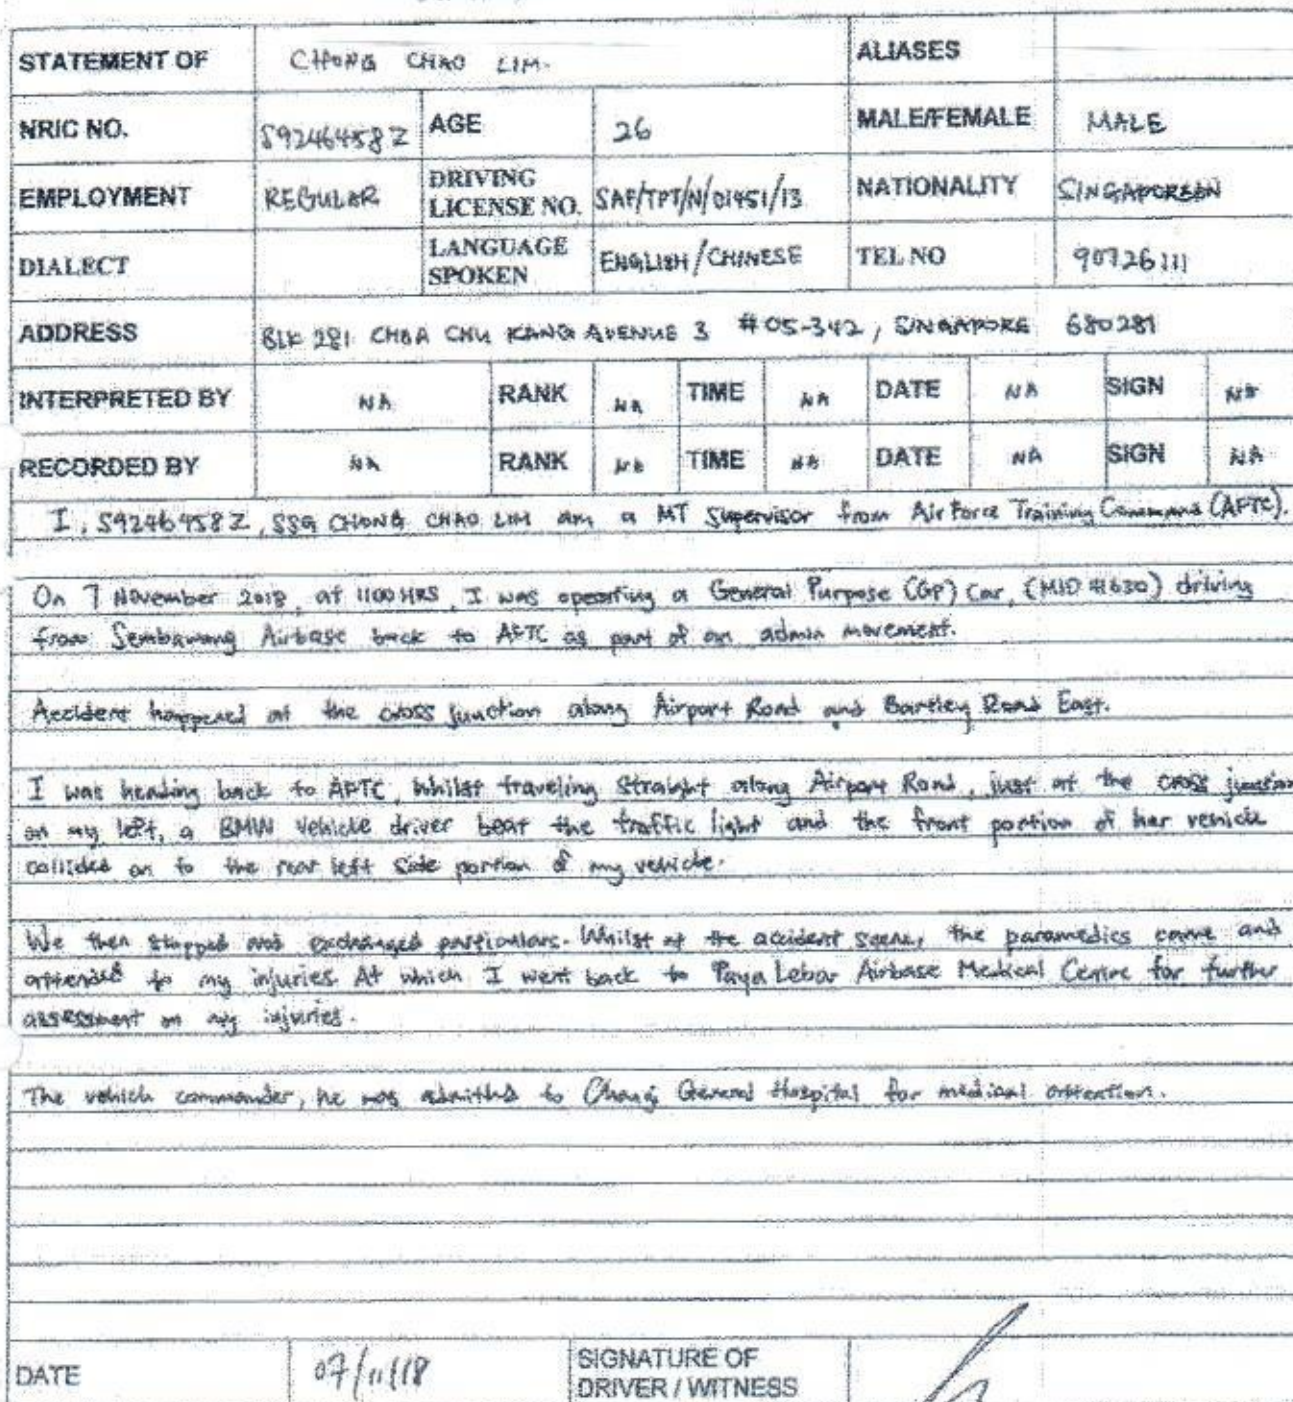 STATEMENT OF CHONG CHAO LIM. ALIASES
NRIC NO. S9246458Z AGE 26 MALE/FEMALE MALE
EMPLOYMENT REGULAR DRIVING LICENSE NO. SAF/TPT/N/01451/13 NATIONALITY SINGAPOREAN
DIALECT LANGUAGE SPOKEN ENGLISH/CHINESE TEL NO 90726111
ADDRESS BLK 281 CHOA CHU KANG AVENUE 3 #05-342, SINGAPORE 680281
INTERPRETED BY NA RANK NA TIME NA DATE NA SIGN NA
RECORDED BY NA RANK NA TIME NA DATE NA SIGN NA
I, S9246458Z, SSG CHONG CHAO LIM am a MT Supervisor from Air Force Training Command (AFTC).
On 7 November 2018, at 1100HRS, I was operating a General Purpose (GP) Car, (MID 41630) driving
from Sembawang Airbase back to AFTC as part of an admin movement.
Accident happened at the cross junction along Airport Road and Bartley Road East.
I was heading back to AFTC, whilst traveling straight along Airport Road, just at the cross junction
on my left, a BMW vehicle driver beat the traffic light and the front portion of her vehicle
collided on to the rear left side portion of my vehicle.
We then stopped and exchanged particulars. Whilst at the accident scene, the paramedics came and
attended to my injuries. At which I went back to Paya Lebar Airbase Medical Centre for further
assessment on my injuries.
The vehicle commander, he was admitted to Changi General Hospital for medical attention.
DATE 07/11/18 SIGNATURE OF DRIVER / WITNESS